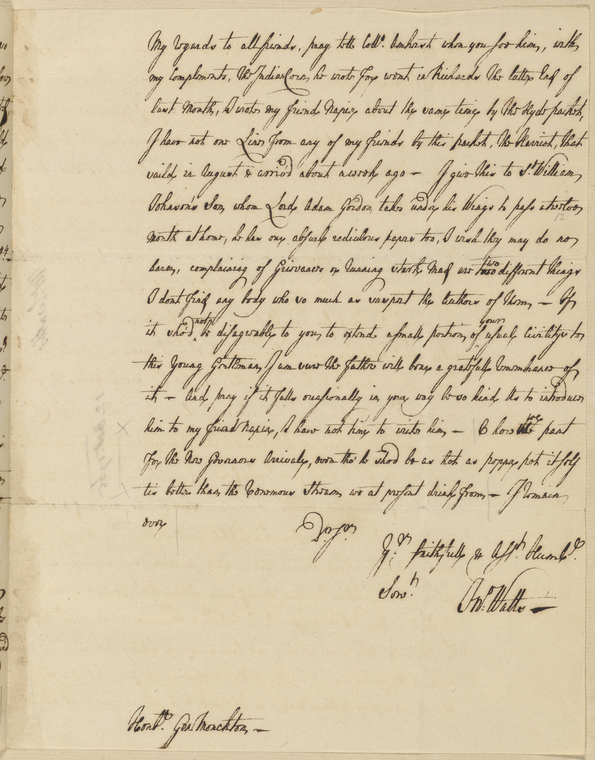 My regards to all friends, pray tell Coll:o Amherst when you see him, with
my Complements, the Indian Corn he wrote for went in Richards the latter End of
last Month, I wrote my friend Napier about the same time by the Hyde packet,
I have not one Line from any of my friends by this packet, the Harriot, that
sail'd in August & arriv'd about a week ago – I give this to Sr. William
Johnson's Son, whom Lord Adam Gordon takes under his Wings to pass a twelve
month at home, he has our absurd rediculous papers too, I wish they may do no
harm, complaining of Grievances & running stark Mad are two different things
I dont find any body who so much as suspect the Authors of them – If
it shod. not be disagreeable to you to extend a small portion of your usual Civilitys to
this Young Gentleman, I am sure the father will bear a gratefull remembrance of
it – And pray if it falls occasionally in your way be so kind Sr. to introduce
him to my friend Napier, I have not time to write him – how we pant
for the New Governors Arrival, even tho' he shod. be as hot as pepper pot itself
tis better than the Venemous Stream we at present drink from – I remain
ever
Dr. Sr.
Yr. faithfull & Afft. Humbe.
Servt.
Jno. Watts –
Honble. Gen Monckton –